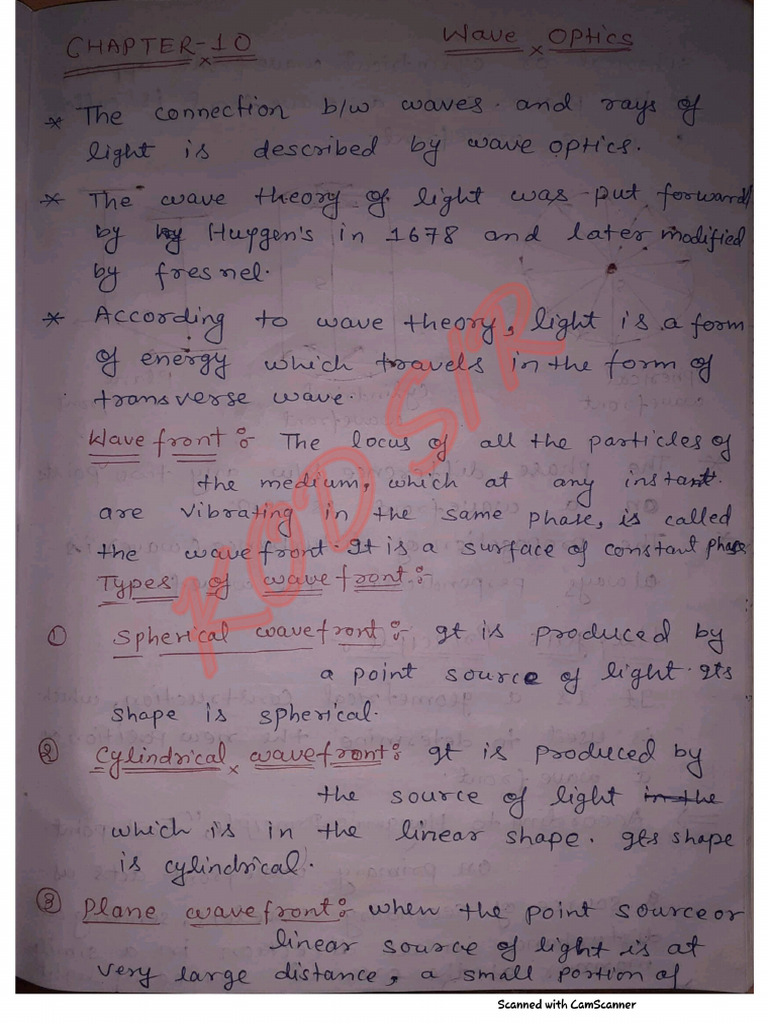 CHAPTER-10 Wave Optics
* The connection b/w waves and rays of
light is described by wave optics.
* The wave theory of light was put forward
by by Huygen's in 1678 and later modified
by fresnel.
* According to wave theory, light is a form
of energy which travels in the form of
transverse wave.
Wavefront :- The locus of all the particles of
the medium, which at any instant
are vibrating in the same phase, is called
the wavefront. It is a surface of constant phase
Types of wavefront :-
① Spherical wavefront :- It is produced by
a point source of light. Its
shape is spherical.
② Cylindrical wavefront :- It is produced by
the source of light in the
which is in the linear shape. Its shape
is cylindrical.
③ Plane wavefront :- when the point source or
linear source of light is at
very large distance, a small portion of
KOD SIR
Scanned with CamScanner